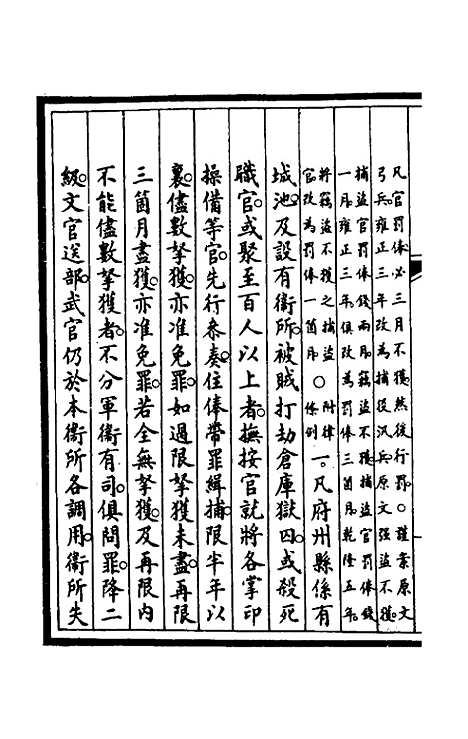 凡官罰俸必三月不獲然後行罰○謹案原文
弓兵雍正三年改為捕役汎兵原文强盜不獲
捕盜官罰俸錢兩月竊盜不獲捕盜官罰俸錢
一月雍正三年俱改為罰俸三箇月乾隆五年
將竊盜不獲之捕盜
官改為罰俸一箇月○附律
條例一凡府州縣係有
城池及設有衛所被賊打劫倉庫獄囚或殺死
職官或聚至百人以上者撫按官就將各掌印
操備等官先行叅奏住俸帶罪緝捕限半年以
裏儘數拏獲亦准免罪如過限拏獲未盡再限
三箇月盡獲亦准免罪若全無拏獲及再限内
不能儘數拏獲者不分軍衛有司俱問罪降二
級文官送部武官仍於本衛所各調用衛所失